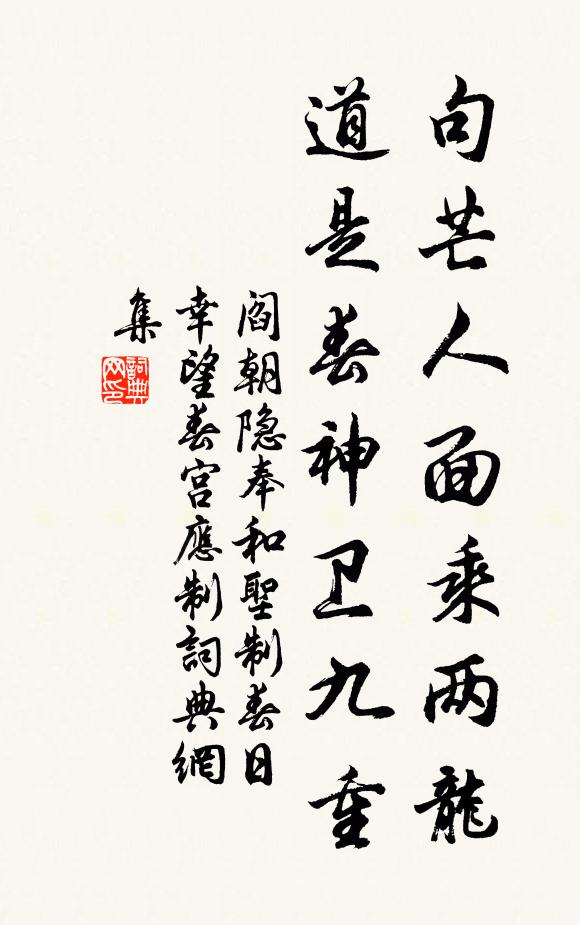 句芒人面乘两龍
道是春神卫九重
阎朝隐奉和聖制春日
幸望春宫應制詞典網
集
詞典
网印